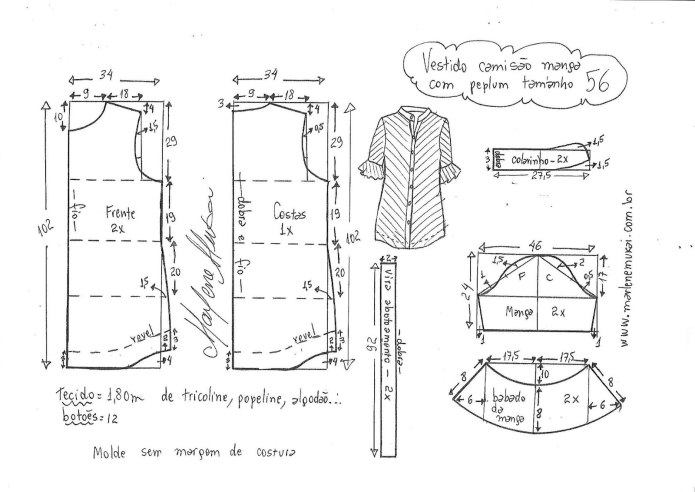 Vestido camisão manga
com peplum tamanho 56
34
9
18
10
4
1,5
29
19
20
102
fio
Frente
2x
15
ravel
2
3
3
4
34
9
18
3
4
0,5
29
19
20
102
dobra e fio
Costas
1x
15
ravel
2
3
3
4
Marlene Mukai
2
92
vira abotoamento - 2x
dobra
dobra
3
4
colarinho - 2x
1,5
1,5
27,5
46
24
17
1
1,5
F
C
2
0,5
Manga
2x
1
1
17,5
17,5
8
10
8
6
8
6
babado
da
manga
2x
www.marlenemukai.com.br
Tecido = 1,80m de tricoline, popeline, algodão...
botões = 12
Molde sem margem de costura